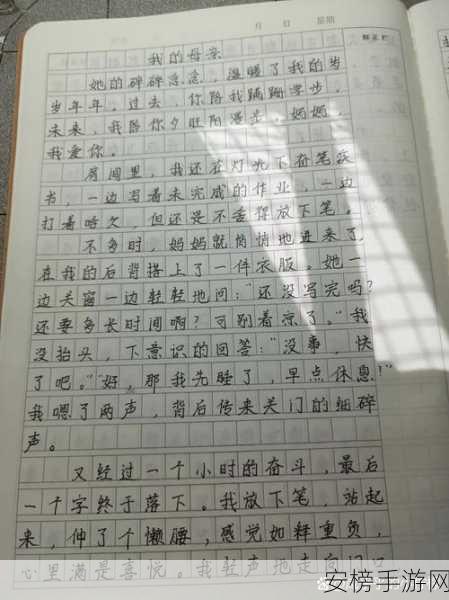 月 日 星期
我的母亲
她的碎碎念念，温暖了我的岁
岁年年。过去，你陪我蹒跚学步，
未来，我陪你夕阳漫步。妈妈，
我爱你。
房间里，我还在灯光下奋笔疾
书，一边写着未完成的作业，一边
打着哈欠，但还是不舍得放下笔。
不多时，妈妈就悄悄地进来了，
在我的后背搭上了一件衣服。她一
边关窗一边轻轻地问：“还没写完吗？
还要多长时间啊？可别着凉了。”我
没抬头，下意识的回答：“没事，快
了吧。”“好，那我先睡了，早点休息！”
我嗯了两声，背后传来关门的细碎
声。
又经过一个小时的奋斗，最后
一个字终于落下。我放下笔，站起
来，伸了个懒腰，感觉如释重负，
心里满是喜悦。我轻声地走向门口
安榜手游网